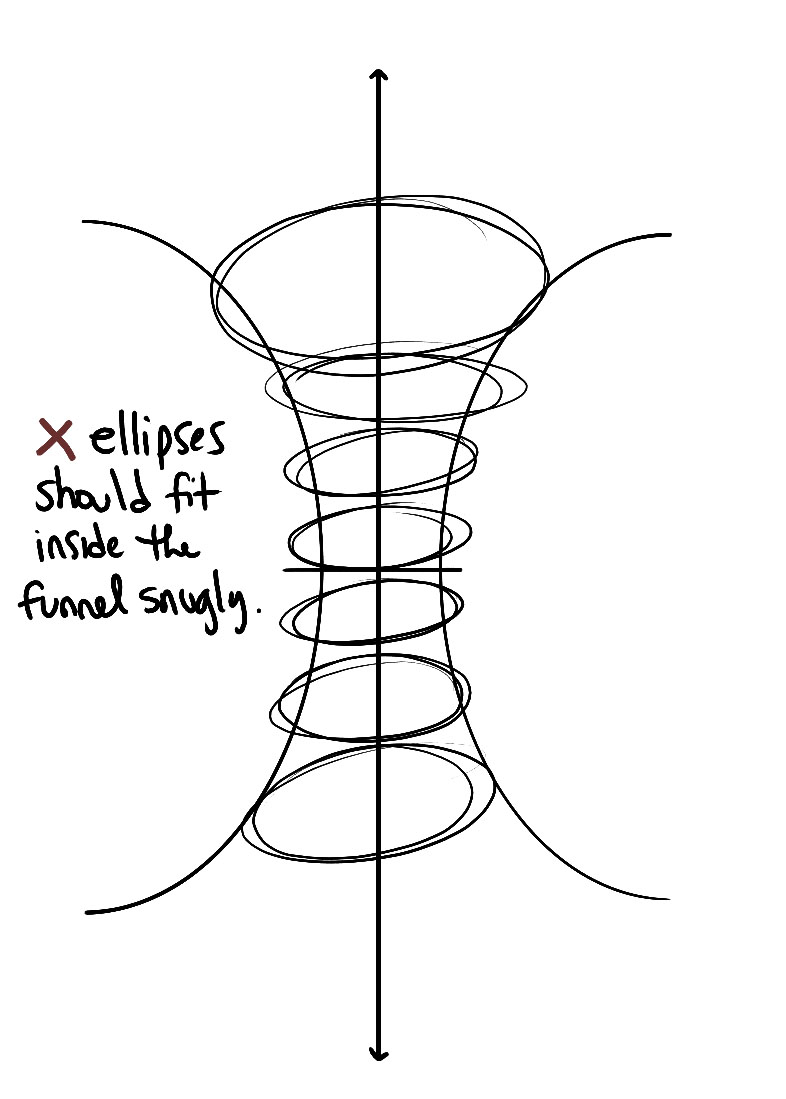 X ellipses
should fit
inside the
funnel snugly.